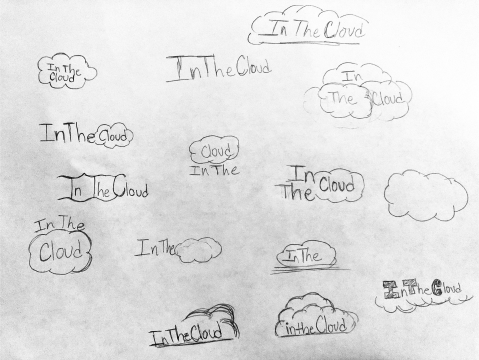 In The Cloud
In The
Cloud
InTheCloud
In
The Cloud
InTheCloud
Cloud
In The
In The Cloud
In
The Cloud
In The
Cloud
InThe
In The
InTheCloud
intheCloud
InTheCloud